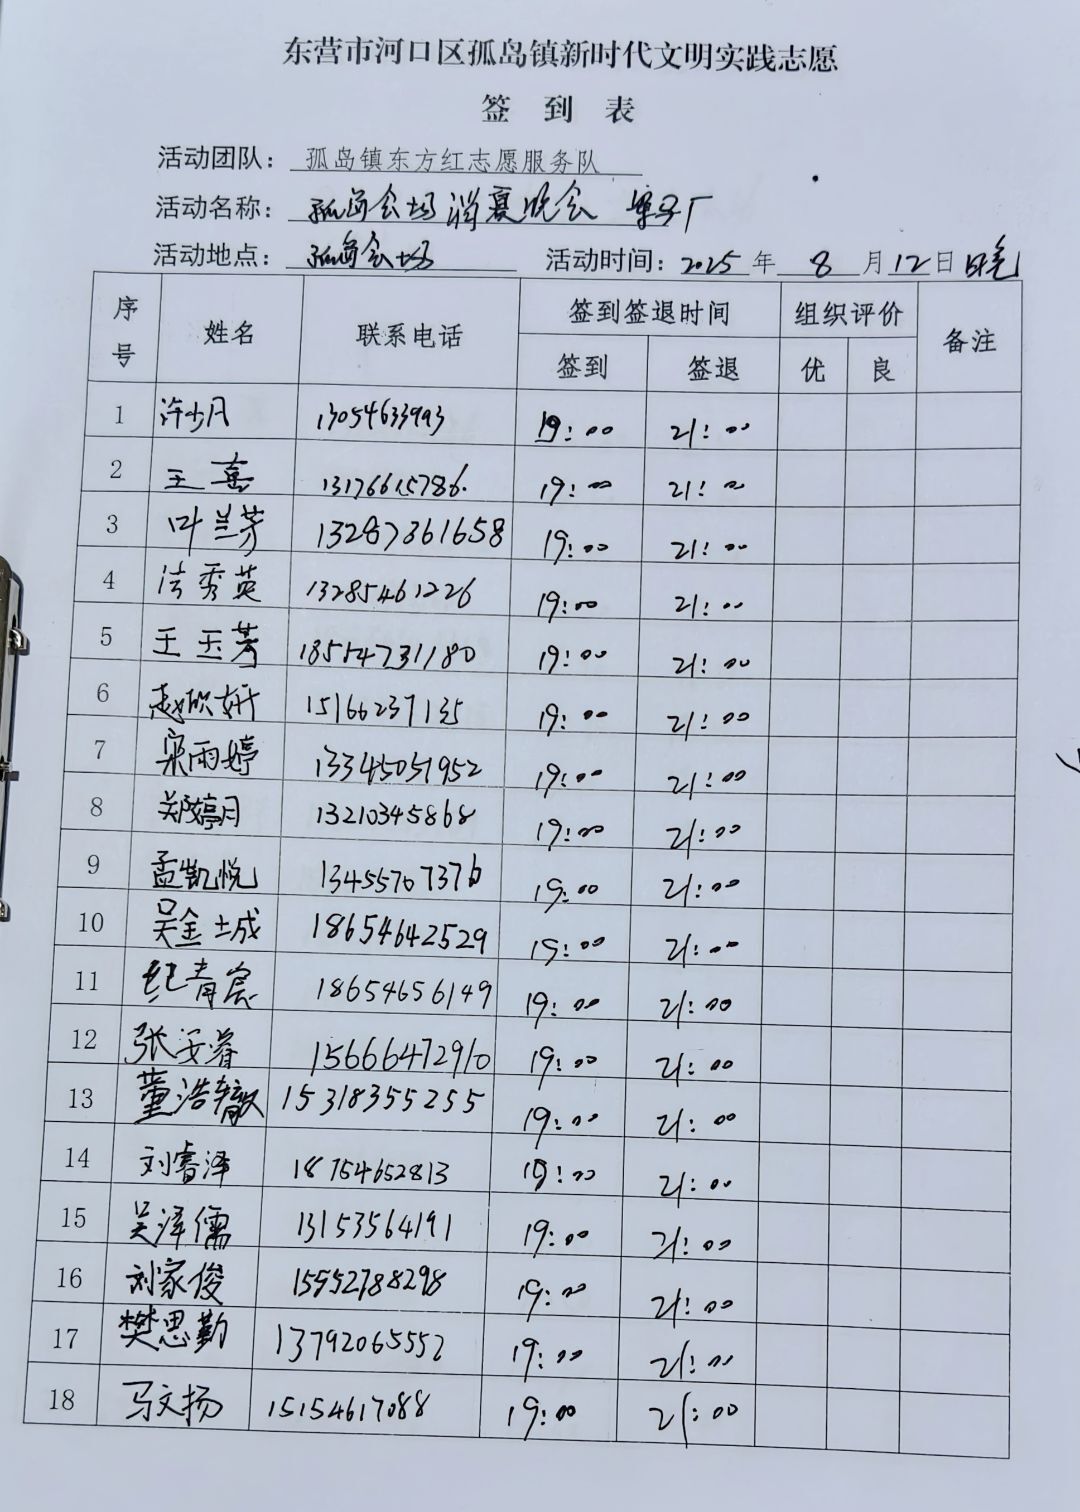 东营市河口区孤岛镇新时代文明实践志愿
签 到 表
活动团队： 孤岛镇东方红志愿服务队
活动名称： 孤岛会场消夏晚会
活动地点： 孤岛会场 活动时间：2025年 8 月12日晚
序号 姓名 联系电话 签到签退时间 组织评价 备注
签到 签退 优 良
1 许少凡 13054633993 19:00 21:00
2 王喜 13176615786. 19:00 21:00
3 叶兰芳 13287361658 19:00 21:00
4 秀英 13285461226 19:00 21:00
5 王玉芳 18554731180 19:00 21:00
6 赵欣妍 15166237135 19:00 21:00
7 梁雨婷 13345051952 19:00 21:00
8 郑婷月 13210345868 19:00 21:00
9 孟凯悦 13455707376 19:00 21:00
10 吴金城 18654642529 19:00 21:00
11 纪青宸 18654656149 19:00 21:00
12 张安睿 15666472910 19:00 21:00
13 董浩 15318355255 19:00 21:00
14 刘睿泽 18754652813 19:00 21:00
15 吴泽儒 13153564191 19:00 21:00
16 刘家俊 15552788298 19:00 21:00
17 樊思勤 13792065552 19:00 21:00
18 马文扬 15154617088 19:00 21:00